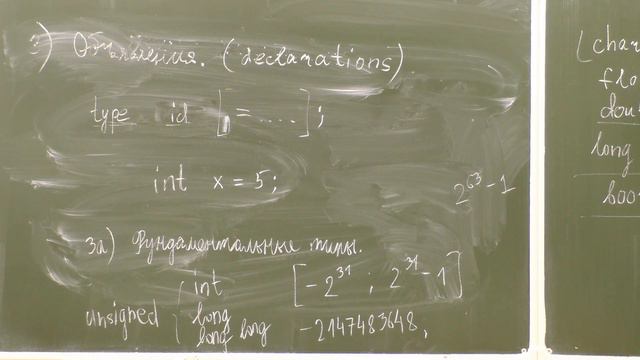 3) Объявления. (declarations)
type id [ = .... ];
int x = 5;
2^63 - 1
3a) Фундаментальные типы.
int [-2^31 ; 2^31 - 1]
unsigned long
long long -2147483648,
(char
flo
dou
long
boo